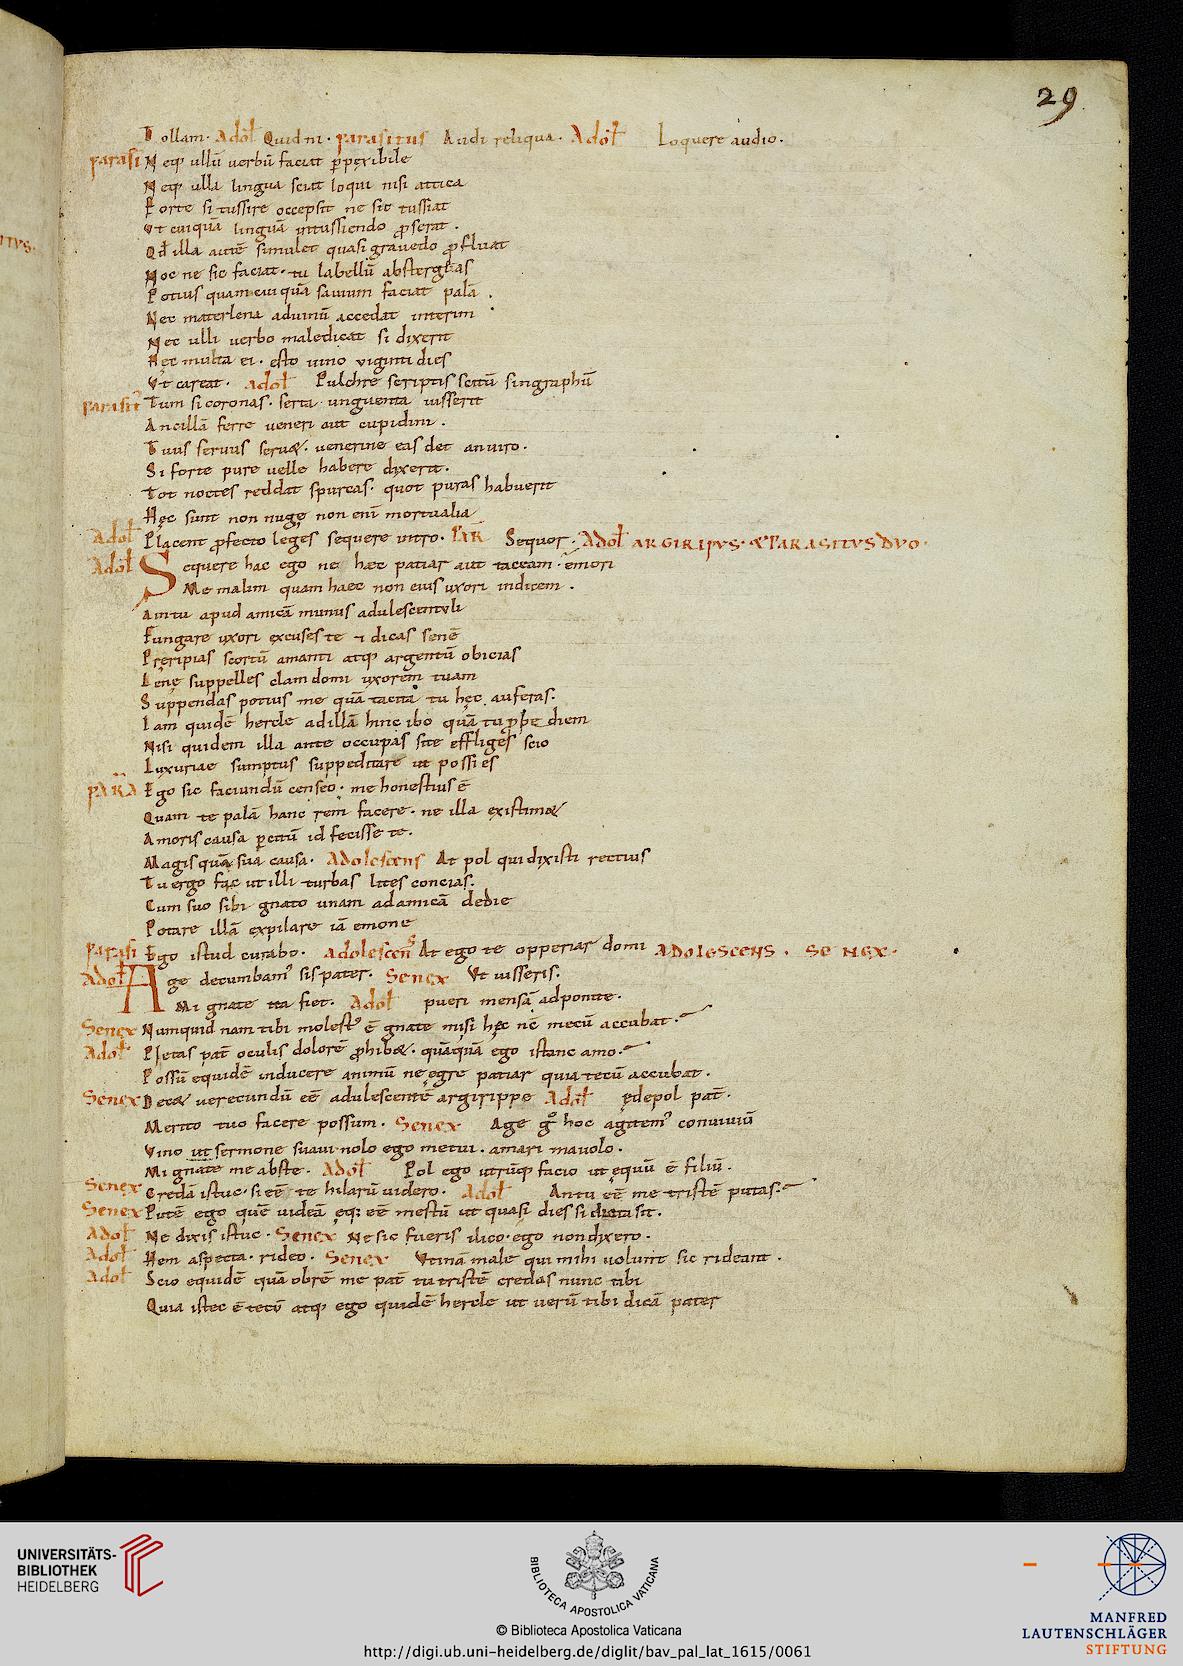 29
Tollam· Adol̄ Quid ni· parasitus Audi reliqua· Adol̄ Loquere audio·
parasi Neq; ullū uerbū faciat p̄pęxibile
Neq; ulla lingua sciat loqui nisi attica
Forte si tussire occepsit ne sic tussiat
Vt cuiquā linguā intussiendo p̄serat·
Qđ illa autē simulet quasi grauedo p̄fluat
Hoc ne sic faciat· tu labellū abstergeas
Potius quam cuiquā sauium faciat palā·
Nec mater lena aduinū accedat interim·
Nec ulli uerbo maledicat si dixerit
Hęc multa ei· esto uino viginti dies
Vt careat· adol̄ Pulchre scriptis scitū singraphū
parasit̄ Tum si coronas· serta unguenta iusserit
Ancillā ferre ueneri aut cupidini·
Tuus seruus seruꝫ· uenerine eas det an uiro·
Si forte pure uelle habere dixerit·
Tot noctes reddat spurcas· quot puras habuerit
Hęc sunt non nugę non enī mortualia
Adol̄ Placent p̄fecto leges sequere intro· PAR Sequor· Adol̄ ARGIRIPVS· & PARASITVS DVO·
Adol̄ Sequere hac ego ne hæc patiar aut taceam· emori
Me malim quam haec non eius uxori indicem·
Aintu apud amicā munus adulescentuli
Fungare uxori excuses te & dicas senē
Pręripias scortū amanti atq; argentū obicias
Lenę suppelles clam domi uxorem tuam
Suppendas potius me quā tacita tu hęc auferas·
Iam quidē hercle ad illā hinc ibo quā tu p̄pe diem
Nisi quidem illa ante occupas site effliges scio
Luxuriae sumptus suppeditare ut possies
PARA Ego sic faciundū censeo· me honestius ē
Quam te palā hanc rem facere· ne illa existimꝫ
Amoris causa p̄citū id fecisse te·
Magis quā sua causa· Adolescens At pol qui dixisti rectius
Tu ergo fac ut illi turbas lites concias·
Cum suo sibi gnato unam ad amicā dedie
Potare illā expilare iā emone
parasi Ego istud curabo· adolescens At ego te opperiar domi ADOLESCENS· SENEX·
Adol̄ Age decumbam' sis pater· Senex Vt iusseris·
Mi gnate ita fiet· Adol̄ pueri mensā adponite·
Senex Numquid nam tibi molest' ē gnate mi si hęc nc̄ mecū accubat·
Adol̄ Pietas pat̄ oculis dolorē p̄hibꝫ· quāquā ego istanc amo·
Possū equidē inducere animū ne ęgre patiar quia tecū accubat·
Senex Decꝫ uerecundū eē adulescentē argirippe Adol̄ ędepol pat̄·
Merito tuo facere possum· Senex Age gº hoc agitem' conuiuiū
Vino ut sermone suaui nolo ego metui· amari mauolo·
Mi gnate me abste· Adol̄ Pol ego utrūq; facio ut ęquū ē filiū·
Senex Credā istuc· si eē te hilarū uidero· Adol̄ An tu eē me tristē putas·
Senex Putē ego quē uideā ęq; eē męstū ut quasi dies si dicta sit·
Adol̄ Ne dixis istuc· Senex Ne sic fueris ilico· ego non dixero·
Adol̄ Hem aspecta· rideo· Senex Vtinā male qui mihi uolunt sic rideant·
Adol̄ Scio equidē quā obrē me pat̄ tu tristē credas nunc tibi
Quia istec ē tecū atq; ego quidē hercle ut uerū tibi dicā pater
UNIVERSITÄTS-
BIBLIOTHEK
HEIDELBERG
BIBLIOTECA APOSTOLICA VATICANA
© Biblioteca Apostolica Vaticana
http://digi.ub.uni-heidelberg.de/diglit/bav_pal_lat_1615/0061
MANFRED
LAUTENSCHLÄGER
STIFTUNG